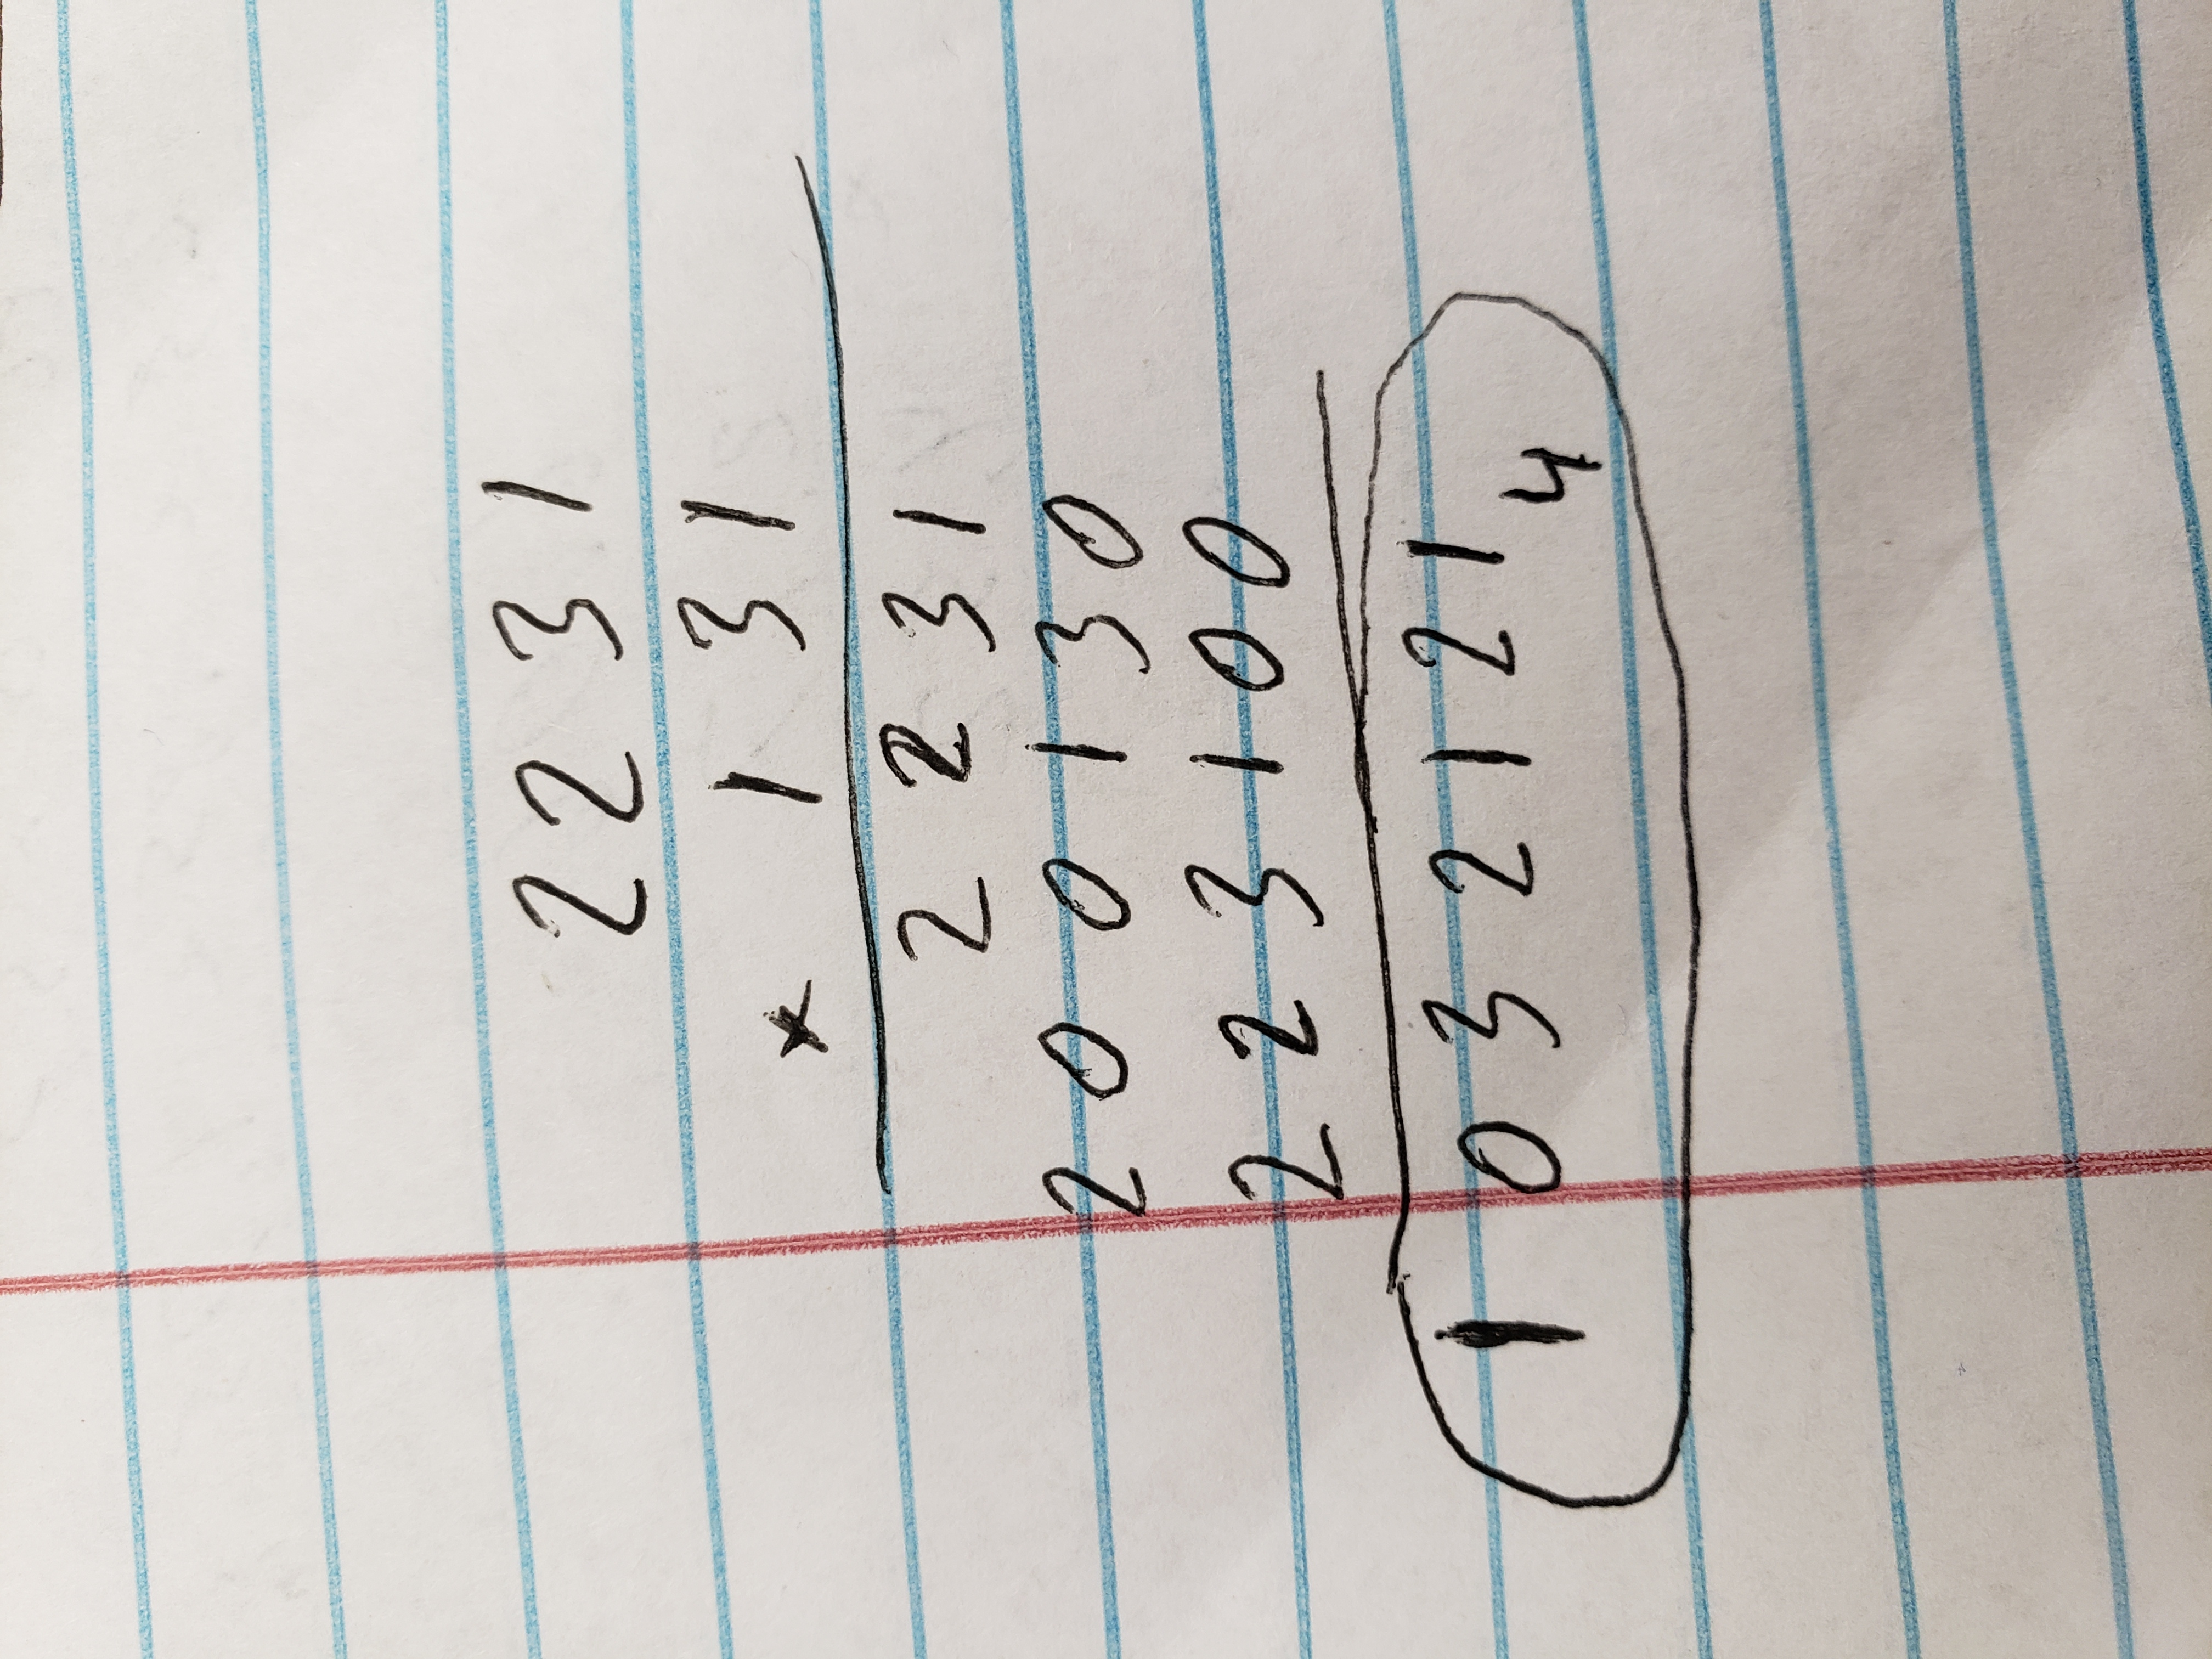 2231
× 131
2231
200130
223100
1032121₄